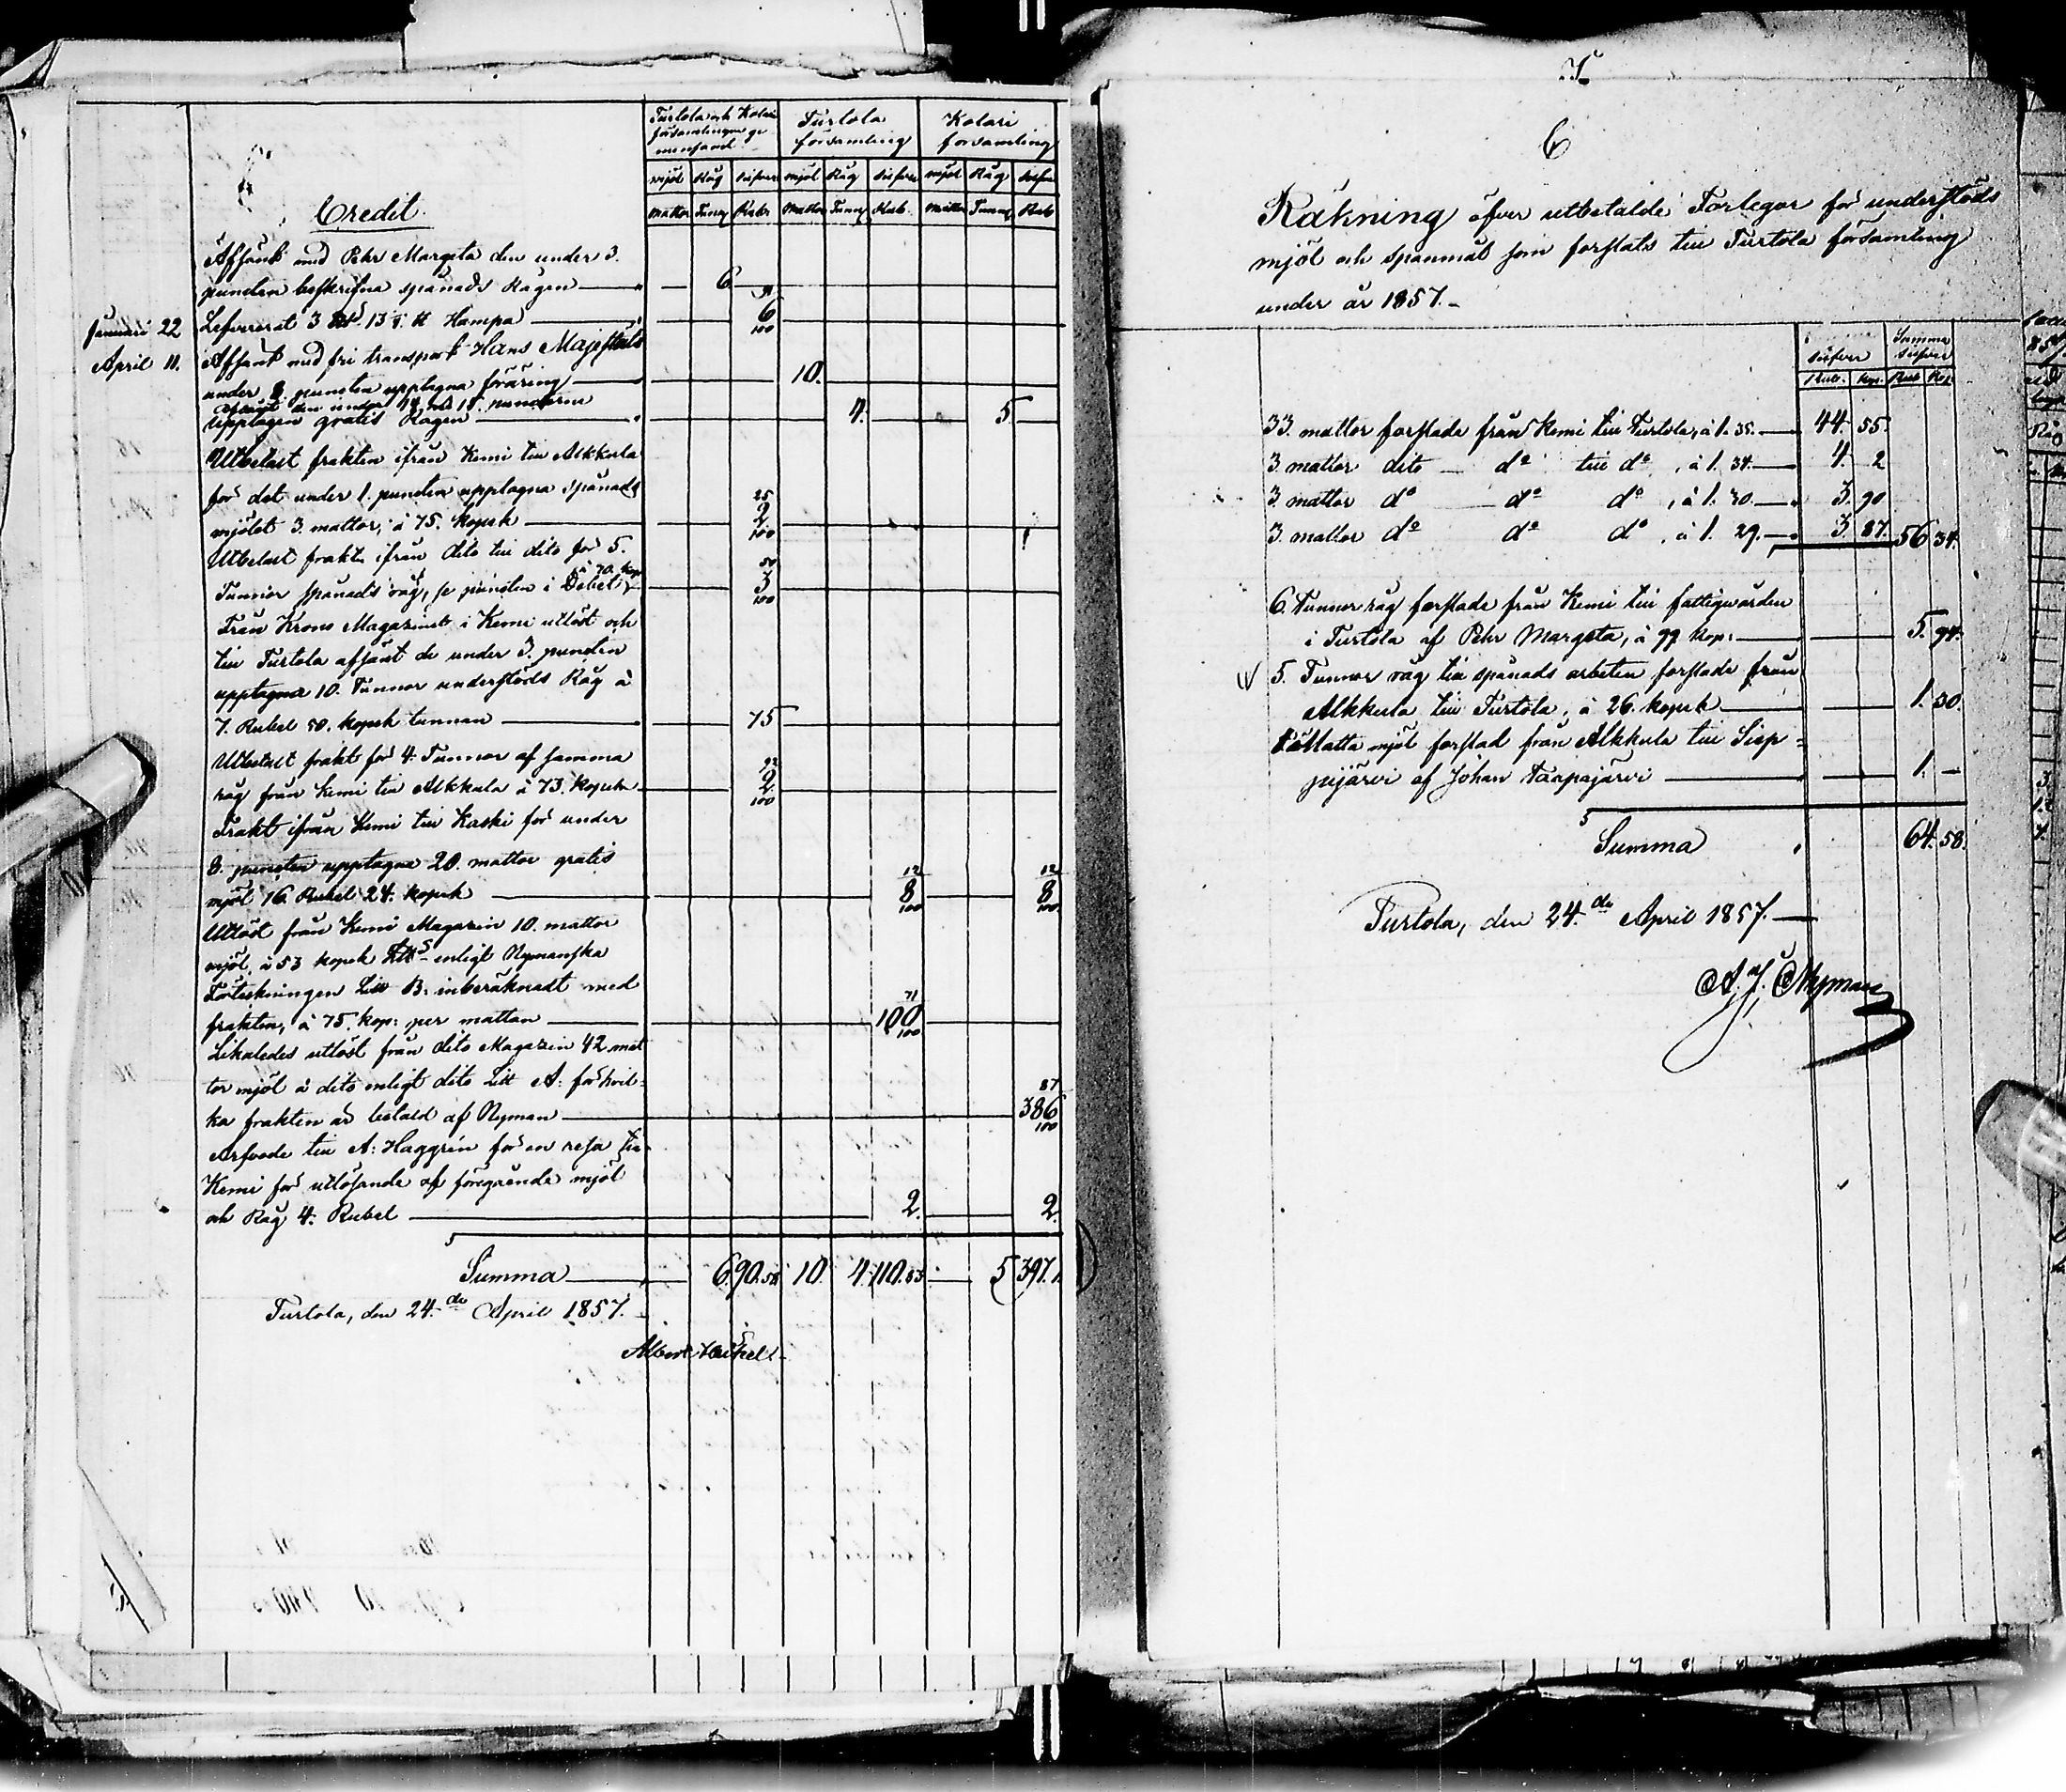 Turtola och Kolari
församlingar ge
mensamt
Turtola
församling
Kolari
församling
mjöl Råg Silfver mjöl Råg Silfver mjöl Råg Silfver
Mattor Tunnor Rubr Mattor Tunnor Rub. Mattor Tunnor Rub
Credit.
Afsändt med Pehr Margeta den under 3.
punkten beskrifna spånads Rågen 6
Januari 22 Lefvererat 3 13 ℔ Hampa 6 91/100
April 11. Afsändt med fri transport Hans Majestäts
under 8 punkten upptagna föräring 10.
under 14 och 15. punkterne
upptagen gratis Rågen 4. 5
Utbetalt frakten ifrån Kemi till Alkkula
för det under 1. punkten upptagna spånads
mjölet 3. mattor, à 75. kopek 2 25/100
Utbetalt frakt ifrån dito till dito för 5.
Tunnor spånads råg, se punkten i Debet, à 70. kop 3 50/100
Från Krono Magazinet i Kemi utlöst och
till Turtola afsändt de under 3. punkten
upptagna 10. Tunnor understöds Råg à
7. Rubel 50. kopek tunnan 75
Utbetalt frakt för 4. Tunnor af samma
råg från Kemi till Alkkula à 73. kopek 2 92/100
Frakt ifrån Kemi till Kaski för under
8. punkten upptagne 20. mattor gratis
mjöl 16. Rubel 24. kopek 8 12/100 8 12/100
Utlöst från Kemi Magazin 10. mattor
mjöl, à 53 kopek enligt Nymanska
Förteckningen Litt B: inberäknadt med
frakten, à 75. kop: per mattan 100 71/100
Likaledes utlöst från dito Magazin 42 mat
tor mjöl à dito enligt dito Litt A: för hvil-
ka frakten är betald af Nyman 386 87/100
Arfvode till A: Haggrén för en resa till
Kemi för utlösande af föregående mjöl
och Råg 4. Rubel 2. 2.
Summa 6. 90.58 10. 4. 110.83 5 397.
Turtola, den 24.de April 1857.
Albert Heikel.
C
Räkning öfver utbetalde Forlegor för understöds
mjöl och spanmål som forslats till Turtola församling
under år 1857.-
Silfver Summa Silfver
Rub. Kop. Rub Kop
33. mattor forslade från Kemi till Turtola, à 1. 35. 44. 55.
3. mattor dito do till do, à 1. 34. 4. 2
3. mattor do do do, à 1. 30. 3. 90
3. mattor do do do, à 1. 29. 3. 87. 56 34.
6. Tunnor råg forslade från Kemi till fattigvården
i Turtola af Pehr Margeta, à 99 kop: 5. 94.
5. Tunnor råg till spånads arbeten forslade från
Alkkula till Turtola, à 26. kopek 1. 30.
Matta mjöl forslad från Alkkula till Siep-
pijärvi af Johan Vaapajärvi 1. –
Summa 64. 58.
Turtola, den 24.de April 1857.
A. J. Nyman